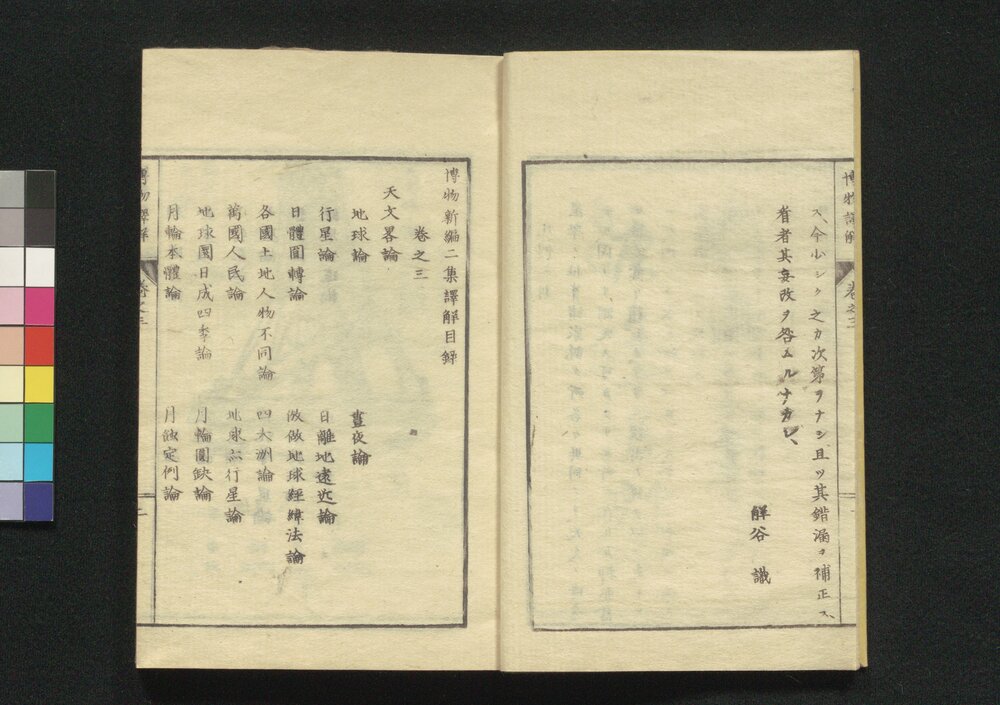 博物譯解
卷之三
ス、今少シク之カ次第ヲナシ、且ツ其錯漏ヲ補正ス、
省者其妄改ヲ咎ムルナカレ、
解谷 識
博物新編二集譯解目錄
卷之三
天文畧論
地球論 晝夜論
行星論 日離地遠近論
日體圓轉論 倣做地球經緯法論
各國土地人物不同論 四大洲論
萬國人民論 地球亦行星論
地球圜日成四季論 月輪圓缺論
月輪本體論 月蝕定例論
博物譯解
卷之三